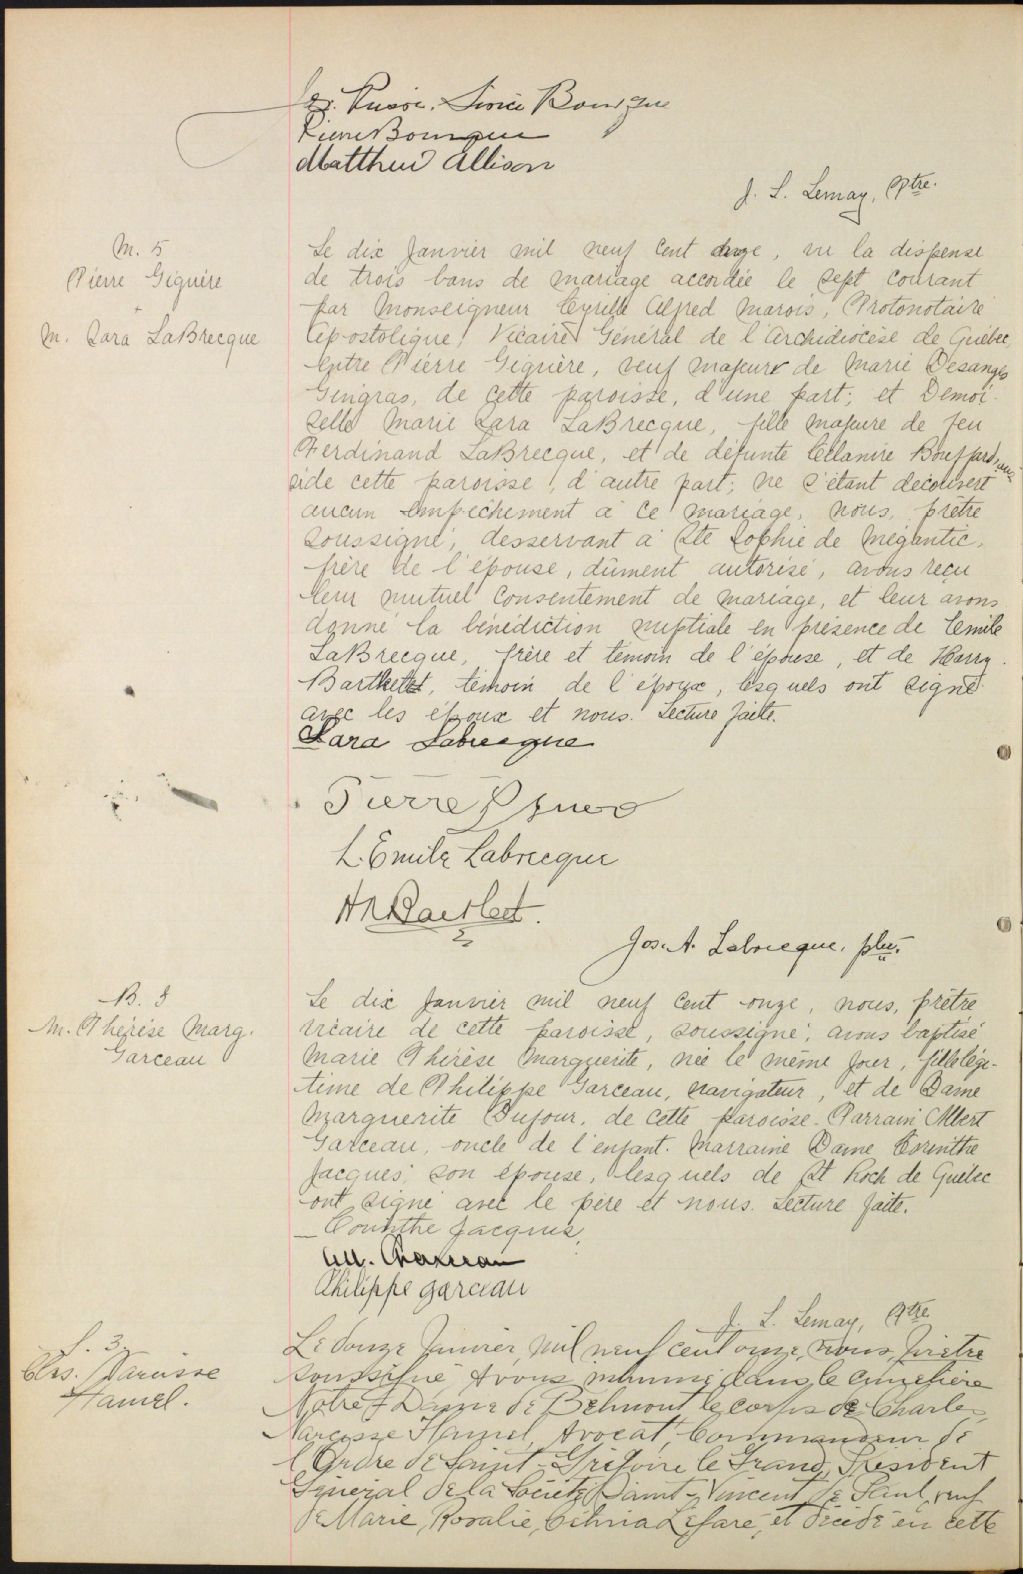 Bourque
Pierre Bourque
Matthew Allison
J. L. Lemay, Ptre.
M. 5
Pierre Giguère
+
M. Sara LaBrecque
Le dix Janvier mil neuf cent onze, vu la dispense
de trois bans de mariage accordée le sept courant
par Monseigneur Cyrille Alfred Marois, Protonotaire
Apostolique, Vicaire Général de l'Archidiocèse de Québec,
entre Pierre Giguère, veuf majeur de Marie Desanges
Gingras, de cette paroisse, d'une part; et Demoi-
selle Marie Sara LaBrecque, fille majeure de feu
Ferdinand LaBrecque, et de défunte Célanire Bouffard, aus-
si de cette paroisse, d'autre part; ne s'étant découvert
aucun empêchement à ce mariage, nous, prêtre
soussigné, desservant à Ste Sophie de Mégantic,
frère de l'épouse, dûment autorisé, avons reçu
leur mutuel consentement de mariage, et leur avons
donné la bénédiction nuptiale en présence de Emile
LaBrecque, frère et témoin de l'épouse, et de Harry
Bartlett, témoin de l'époux, lesquels ont signé
avec les époux et nous. Lecture faite.
Sara Labrecque
Pierre Giguère
L. Emile Labrecque
H R Bartlett.
Jos. A. Labrecque, ptre.
B. 8
M. Thérèse Marg.
Garceau
Le dix Janvier mil neuf cent onze, nous, prêtre
vicaire de cette paroisse, soussigné, avons baptisé
Marie Thérèse Marguerite, née le même jour, fille légi-
time de Philippe Garceau, navigateur, et de Dame
Marguerite Dufour, de cette paroisse. Parrain Albert
Garceau, oncle de l'enfant. Marraine Dame Corinthe
Jacques, son épouse, lesquels de St Roch de Québec
ont signé avec le père et nous. Lecture faite.
Corinthe Jacques,
Alb. Garceau
Philippe Garceau
J. L. Lemay, Ptre.
S. 3.
Chs. Narcisse
Hamel.
Le douze Janvier, mil neuf cent onze, nous, prêtre
soussigné avons inhumé dans le cimetière
Notre Dame de Belmont le corps de Charles,
Narcisse Hamel, Avocat, Commandeur de
l'Ordre de Saint-Grégoire le Grand, Président
Général de la Société Saint-Vincent de Paul, veuf
de Marie, Rosalie, Légaré, et décédé en cette